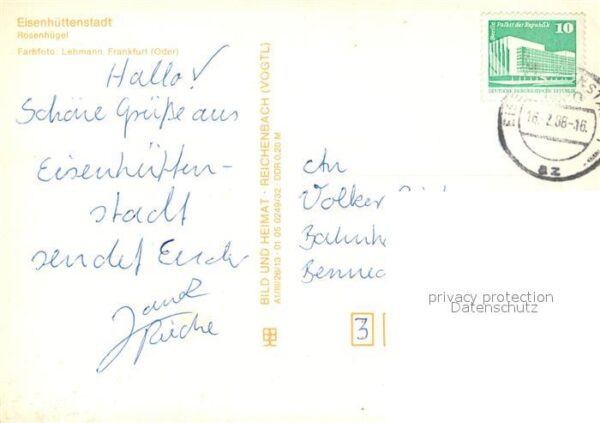 Eisenhüttenstadt
Rosenhügel
Farbfoto: Lehmann, Frankfurt (Oder)
Hallo!
Schöne Grüße aus
Eisenhütten-
stadt
sendet Euch
BILD UND HEIMAT · REICHENBACH (VOGTL)
A1/III/26/13 · 01 05 0249/32 · DDR 0,20 M
Berlin Palast der Republik
10
DEUTSCHE DEMOKRATISCHE REPUBLIK
-16
az
An
Volker
Bahnh
Benne
privacy protection
Datenschutz
3